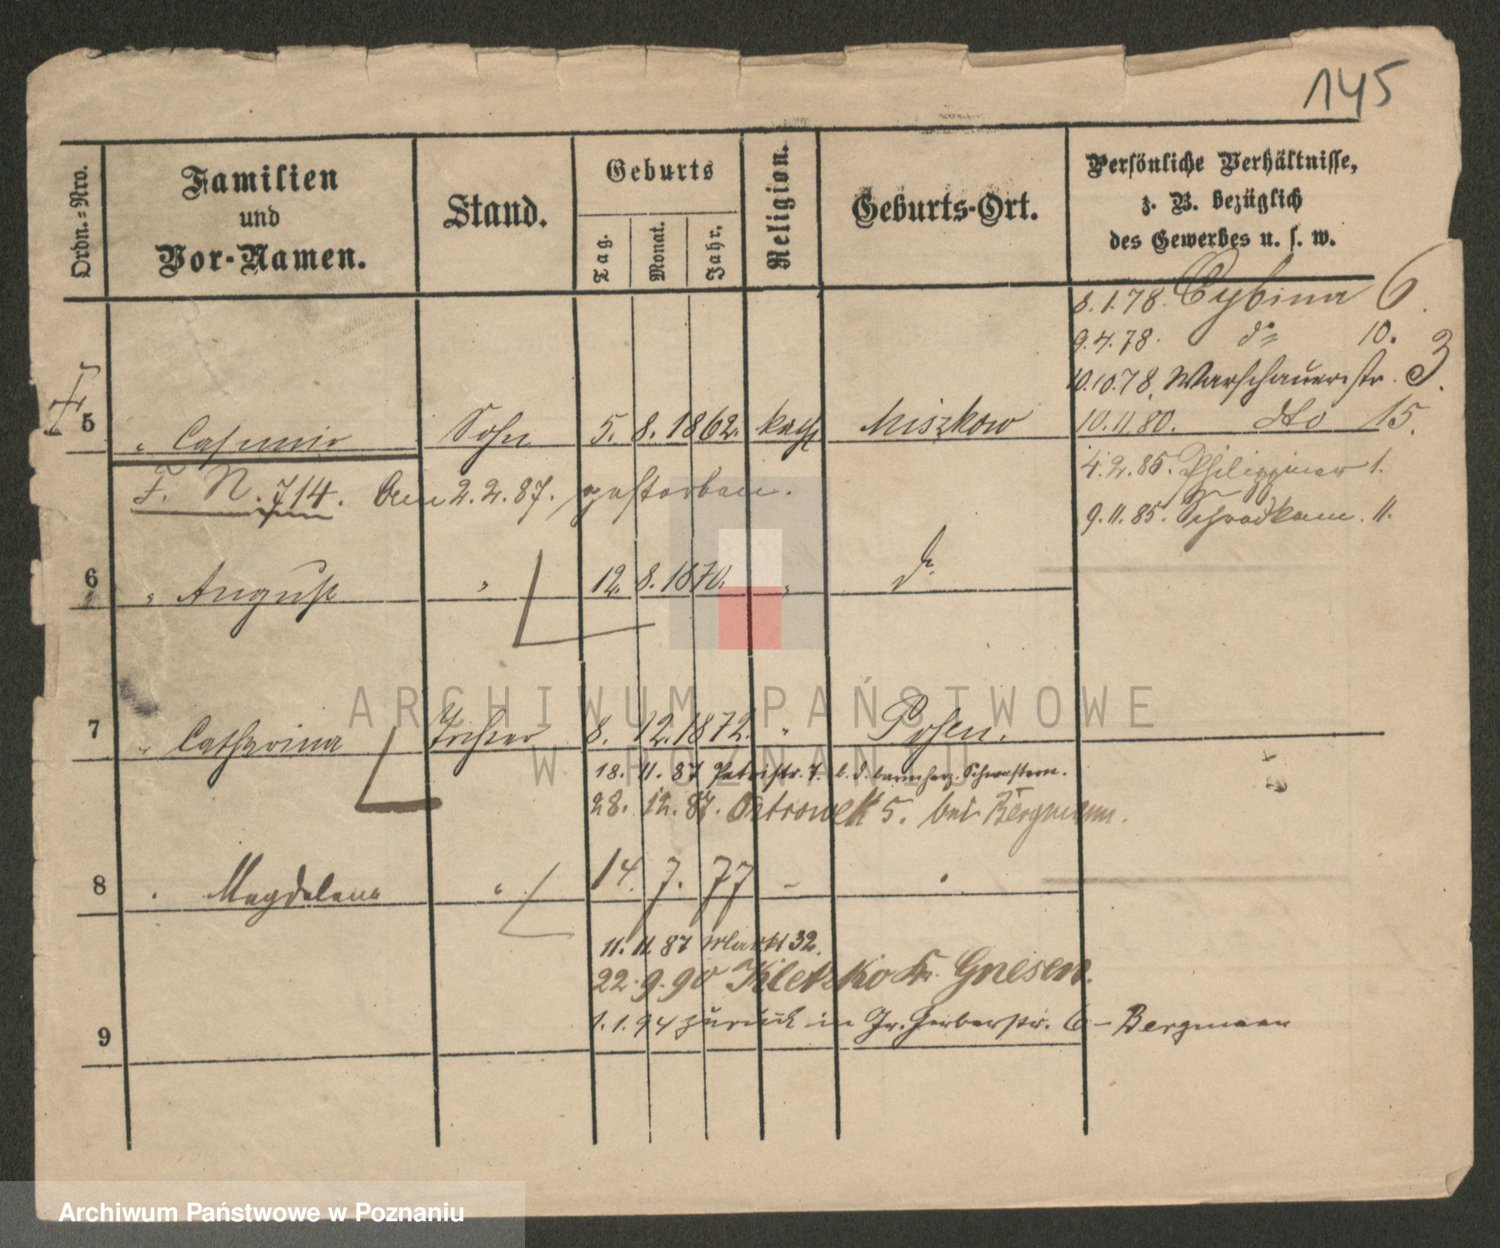 145
Ordn.=Nro.
Familien
und
Vor-Namen.
Stand.
Geburts
Tag.
Monat.
Jahr.
Religion.
Geburts-Ort.
Persönliche Verhältnisse,
z. B. bezüglich
des Gewerbes u. s. w.
8.1.78. Cybina 6.
9.4.78. do 10.
10.10.78. Warschauerstr. 3.
10.11.80. dto 15.
4.2.85. Philippiner 1.
9.11.85. Schrodkam. 11.
5 " Casimir Sohn 5. 8. 1862. kath Miszkow
F. N. 714. Am 2.2.87. gestorben.
6 " August " 12. 8. 1870. " do
7 " Catharina Tochter 8. 12. 1872. " Posen.
18. 11. 87 Petristr. 7. b. d. barmherz. Schwestern.
28. 12. 87. Ostrowek 5. bei Bergmann.
8 " Magdalena " 14. 7. 77 - "
11. 11. 87 Markt 32.
22. 9. 90 Kletzko Kr. Gnesen.
1. 1. 94 zurück in Gr. Gerberstr. 6 - Bergmann
9
ARCHIWUM PAŃSTWOWE
W POZNANIU
Archiwum Państwowe w Poznaniu